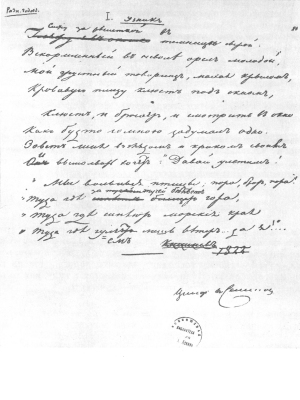 I. Узникъ
Сижу за рѣшеткой въ темницѣ сырой.
Вскормленный въ неволѣ орелъ молодой,
Мой грустный товарищъ, махая крыломъ,
Кровавую пищу клюетъ подъ окномъ,
Клюетъ, и бросаетъ, и смотритъ въ окно
Какъ будто со мною задумалъ одно.
Зоветъ меня взглядомъ и крикомъ своимъ
вымолвить хочетъ: "Давай улетимъ!
"Мы вольныя птицы: пора, братъ, пора!
"Туда гдѣ за тучей бѣлѣетъ гора,
"Туда гдѣ синѣютъ морскіе края
"Туда гдѣ гуляемъ лишь вѣтеръ.. да я!..."
1822